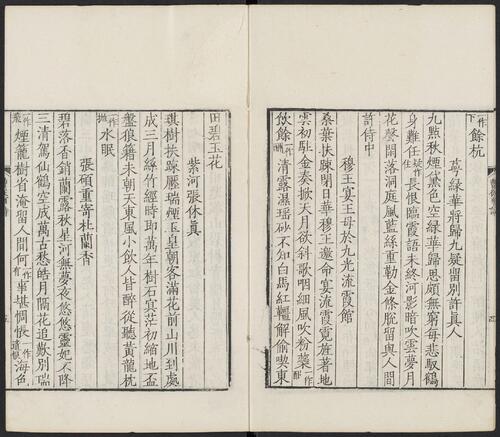 下一作餘杭
萼綠華將歸九疑留別許真人
九點秋煙黛色空綠華歸思頗無窮每悲馭鶴
身難任疑作住長恨臨霞語未終河影暗吹雲夢月
花聲閒落洞庭風藍絲重勒金條脫留與人間
許侍中
穆王宴王母於九光流霞館
桑葉扶疎閉日華穆王邀命宴流霞霓旌著地
雲初駐金奏掀天月欲斜歌咽細風吹粉蘂
飲餘清露濕瑤砂不知白馬紅韁解偷喫東
田碧玉花
紫河張休真
琪樹扶疎壓瑞煙玉皇朝客滿花前山川到處
成三月絲竹經時即萬年樹石冥茫初縮地盃
盤狼籍未朝天東風小飲人皆醉從聽黃龍枕
水眠
張碩重寄杜蘭香
碧落香銷蘭露秋星河無夢夜悠悠靈妃不降
三清駕仙鶴空成萬古愁皓月隔花追歎別瑞
煙籠樹省淹留人間何事堪惆悵海色